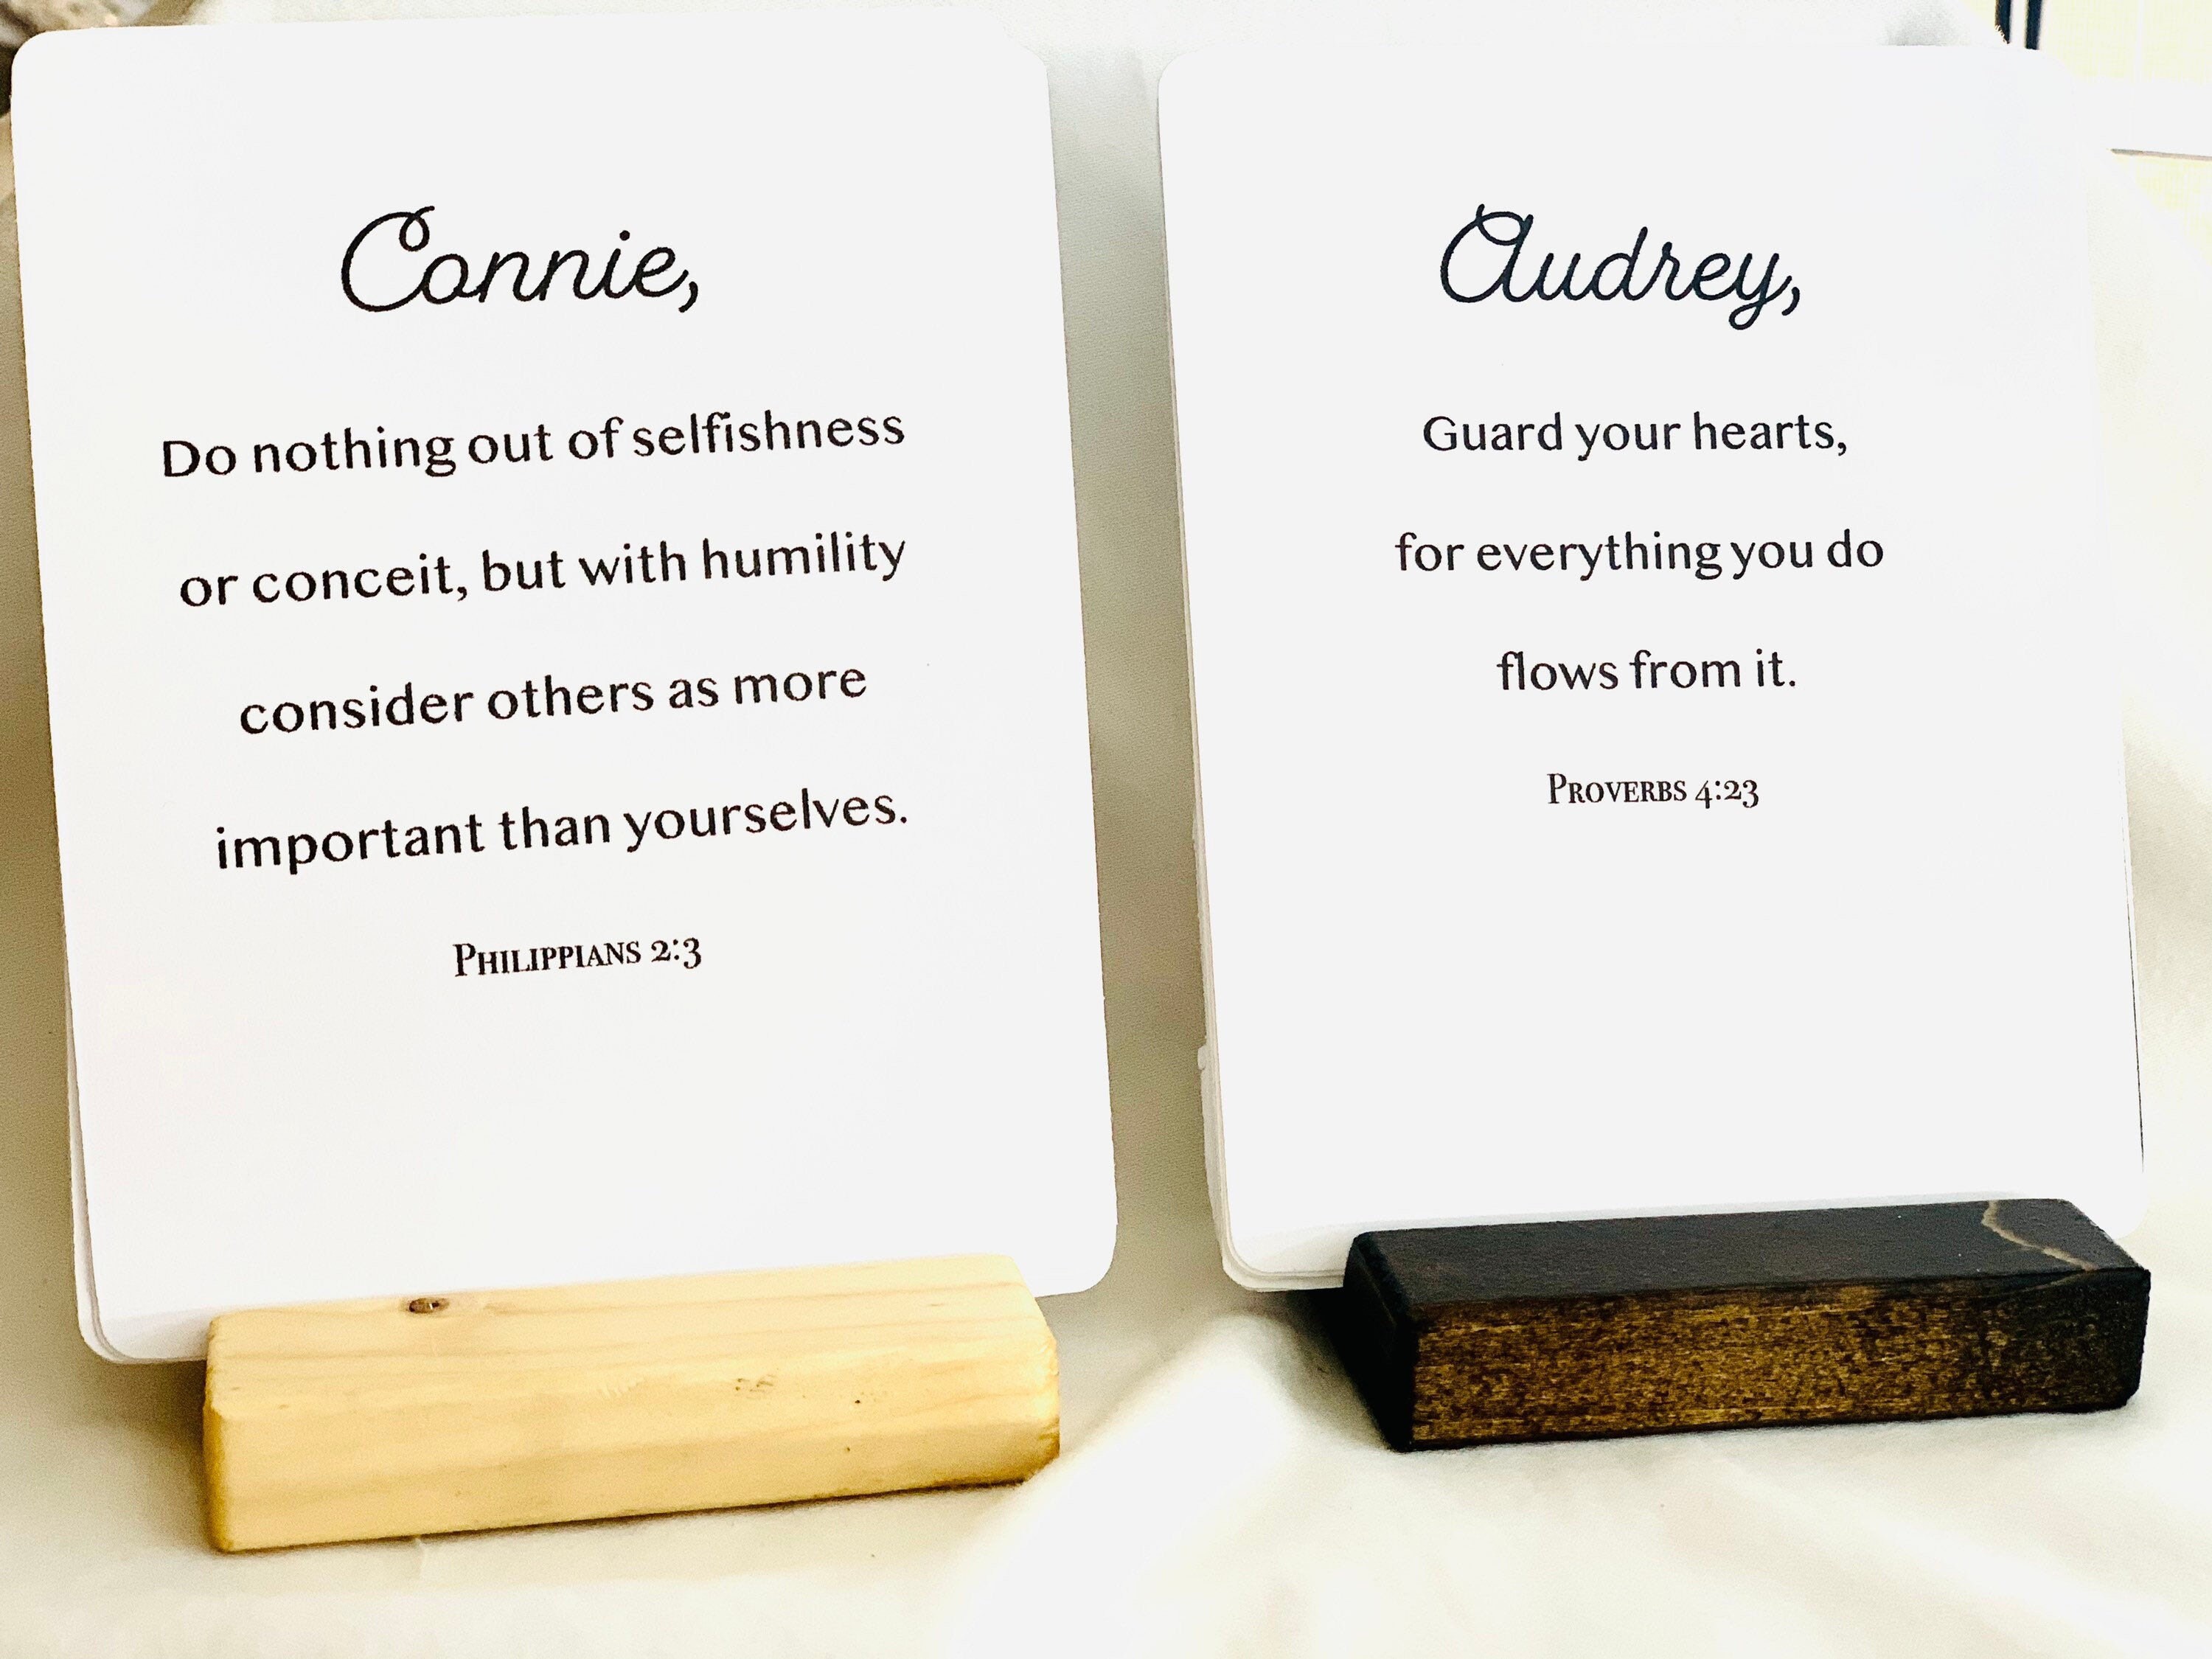 Connie,
Do nothing out of selfishness
or conceit, but with humility
consider others as more
important than yourselves.
Philippians 2:3
Audrey,
Guard your hearts,
for everything you do
flows from it.
Proverbs 4:23